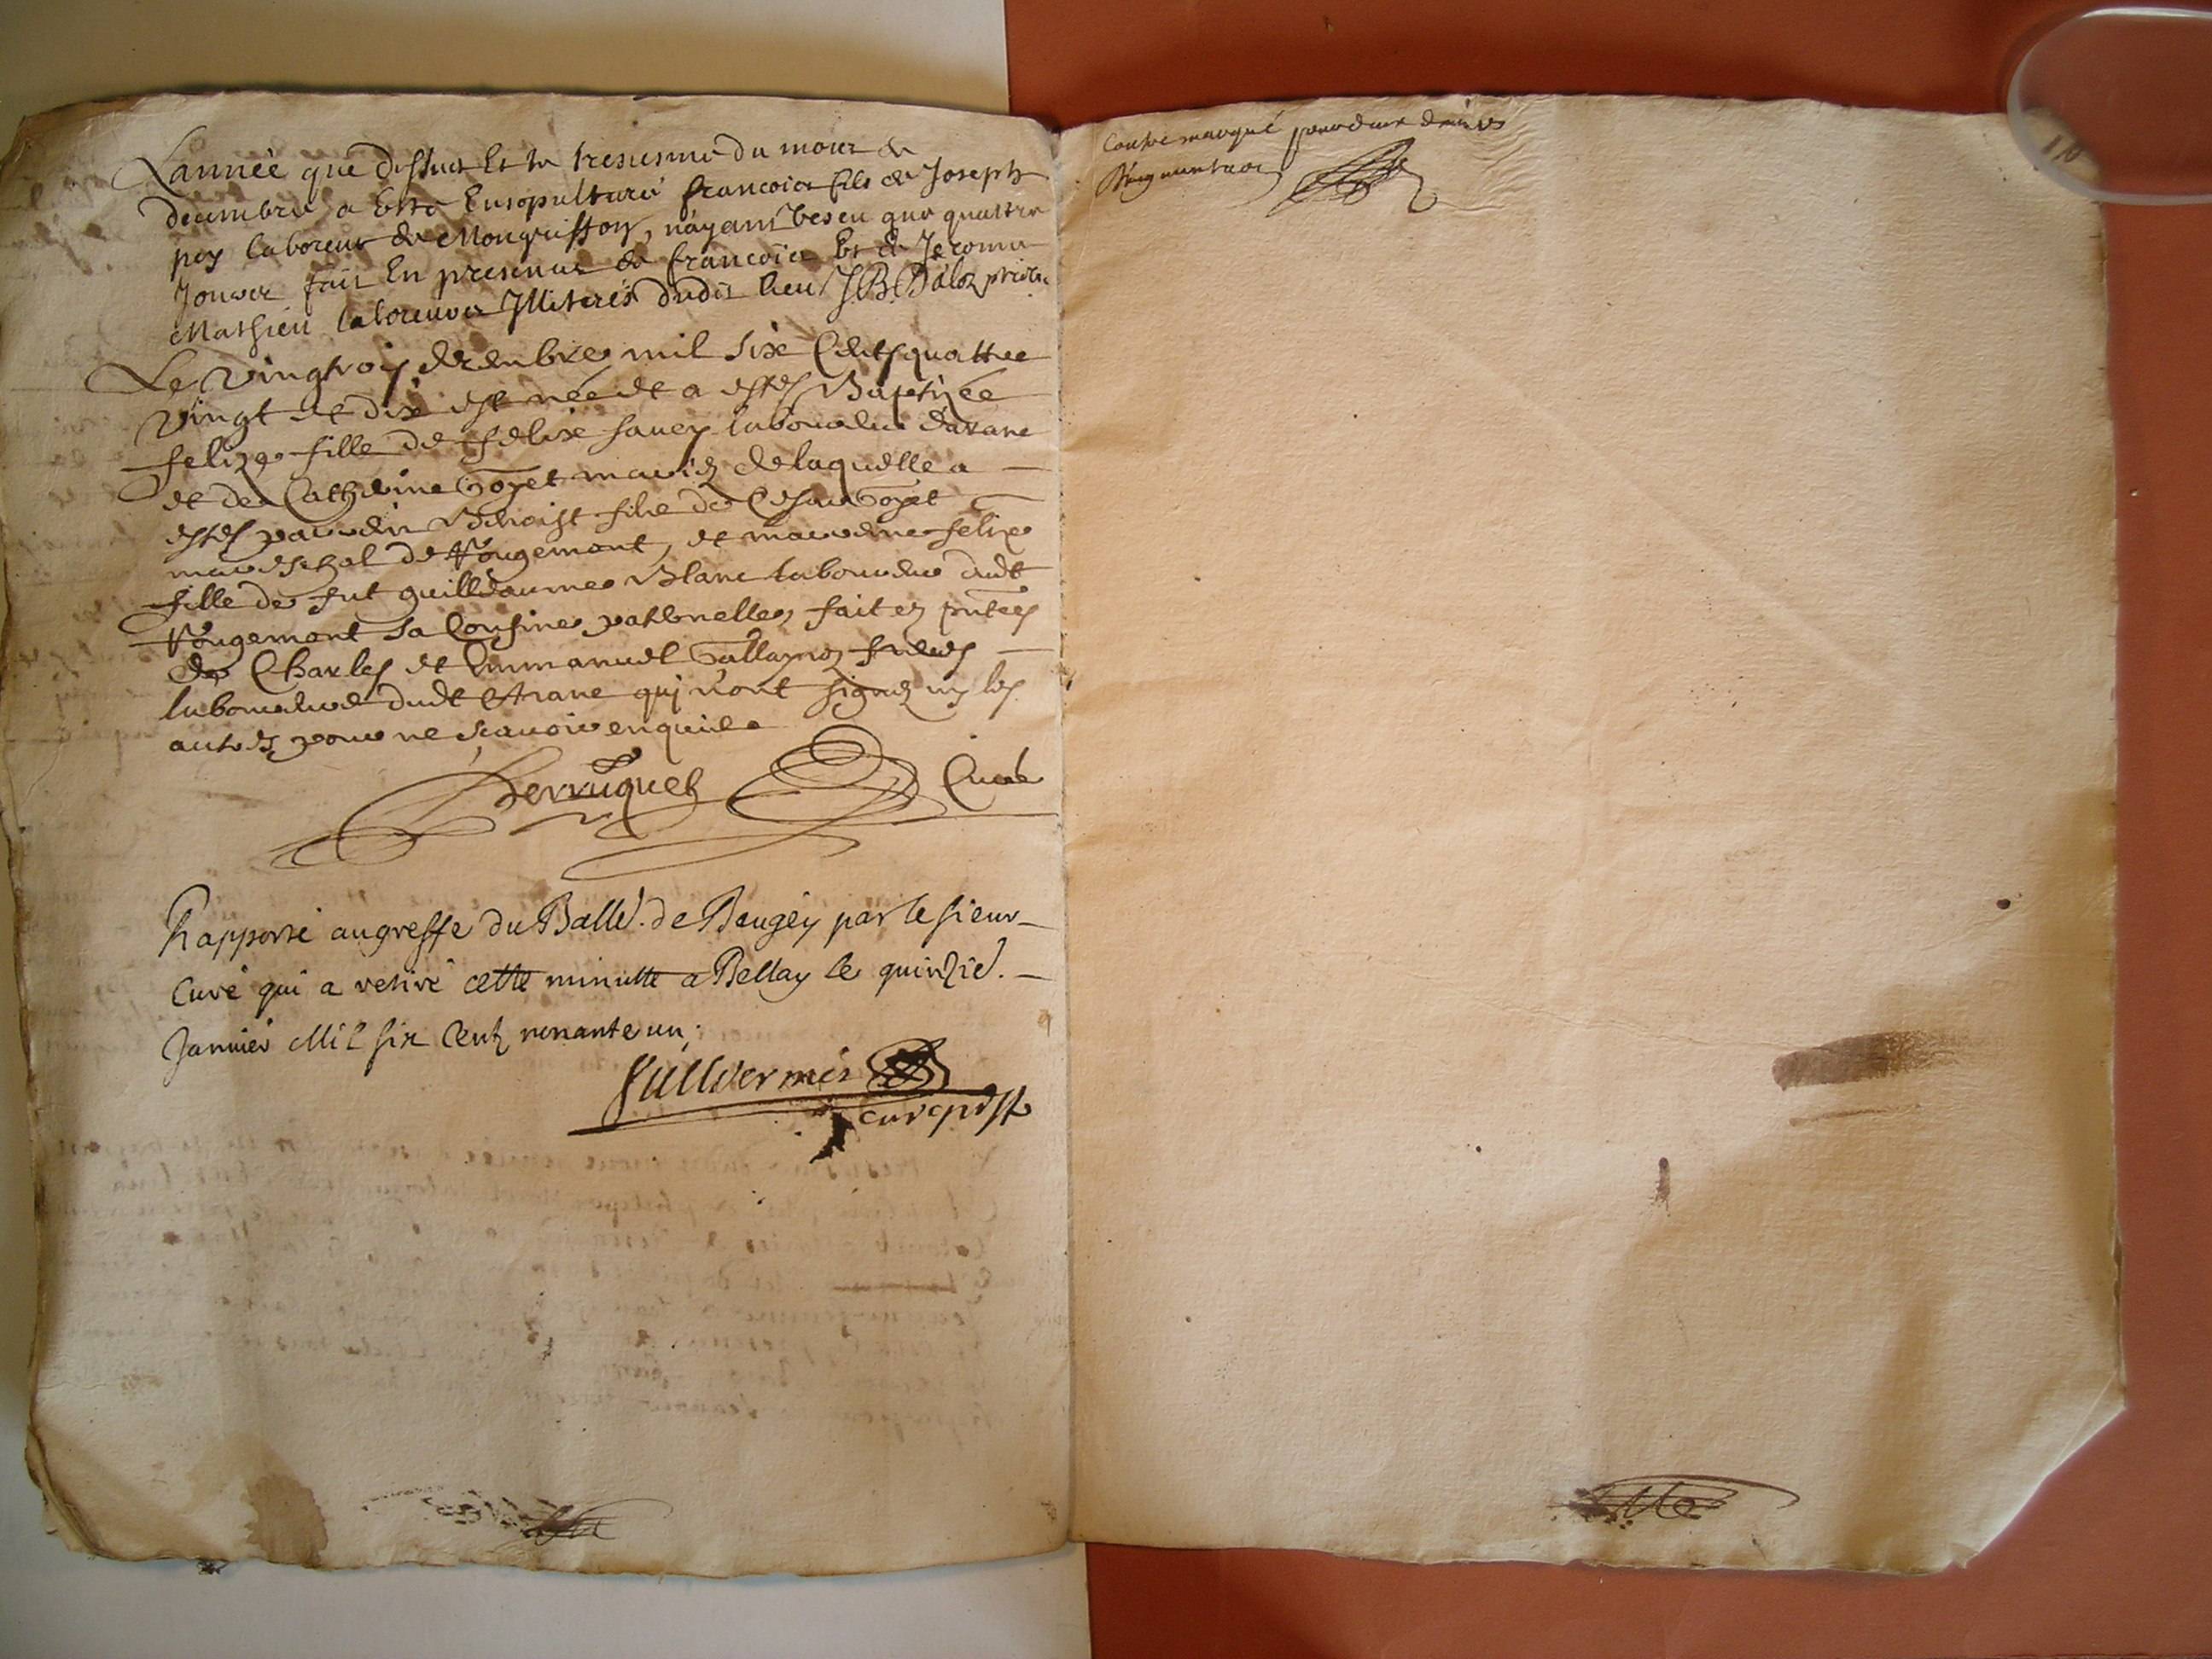 L'année que dessus Et le tresiesme du mois de
decembre a esté Ensepulturé francois fils de Joseph
pey laboreur de Mongriffon, n'ayant vescu que quattre
Jours fait En presence de francois Et de Jerome
Mathieu laboreurs Illiterés dudit lieu J.B. Baloz
Le vingtrois decenbre mil six Centz quattre
vingt et dix est née et a estes Baptizée
felize fille de felix savey laboureur darane
et de Catherine Goyet mariez de laquelle a
estes parrain Benoist filz de Cesar Goyet
mareschal de Rougemont, et marreine felize
fille de fut guillaume Blanc laboureur dudt
Rougemont sa Cousine paternelle, fait en pntes
de Charles et Emmanuel Gallayno freres
laboureurs dudt Arane qui n'ont signez ny les
autres pour ne scavoir enquis
Perruquet Curé
Rapporté au greffe du Balle. de Beugey par le sieur
Curé qui a retiré cette minutte a Bellay le quinzie.
Janvier Mil six Cent nonante un;
Contre marqué pour deux deniers
d'augmentaon